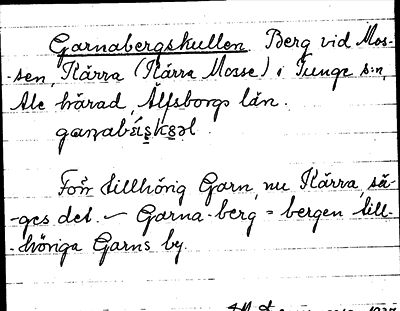 Garnabergskullen. Berg vid Mos-
-sen, Kärra (Kärra Mosse) i Tunge s:n,
Ale härad, Älfsborgs län.
Förr tillhörig Garn, nu Kärra, sä-
-ges det. — Garna-berg = bergen till-
-höriga Garns by.